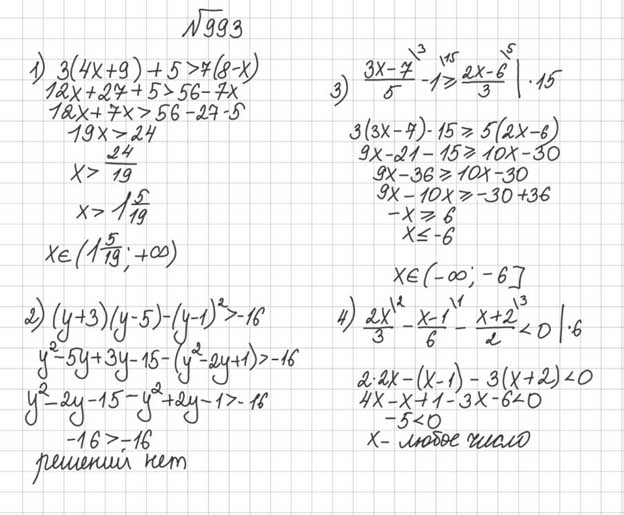 №993
1) 3(4x+9)+5>7(8-x)
12x+27+5>56-7x
12x+7x>56-27-5
19x>24
x>24/19
x>1 5/19
x∈(1 5/19; +∞)
2) (y+3)(y-5)-(y-1)²>-16
y²-5y+3y-15-(y²-2y+1)>-16
y²-2y-15-y²+2y-1>-16
-16>-16
решений нет
3) (3x-7)/5 \3 -1 \15 ≥ (2x-6)/3 \5 | ·15
3(3x-7)-15≥5(2x-6)
9x-21-15≥10x-30
9x-36≥10x-30
9x-10x≥-30+36
-x≥6
x≤-6
x∈(-∞; -6]
4) 2x/3 \2 - (x-1)/6 \1 - (x+2)/2 \3 <0 | ·6
2·2x-(x-1)-3(x+2)<0
4x-x+1-3x-6<0
-5<0
x- любое число